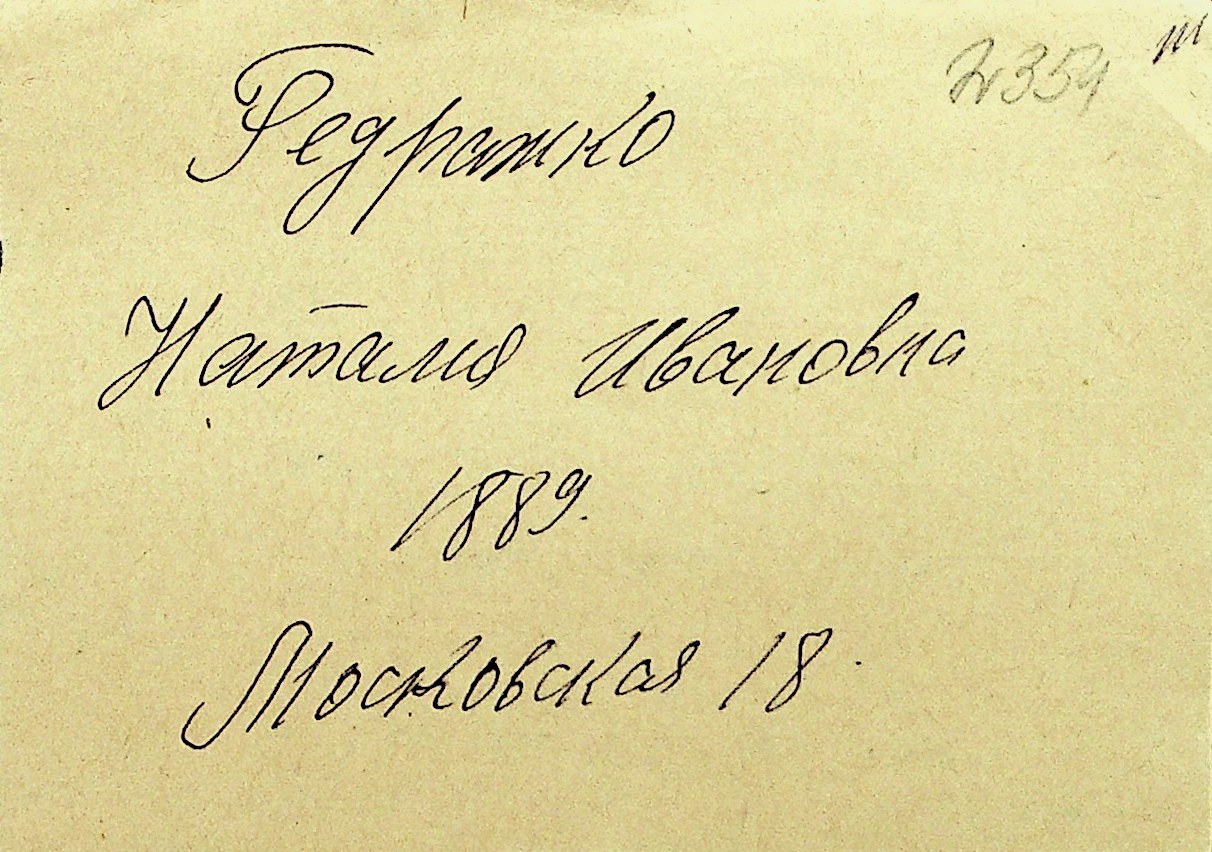 354
Редражко
Наталия Ивановна
1889.
Московская 18.